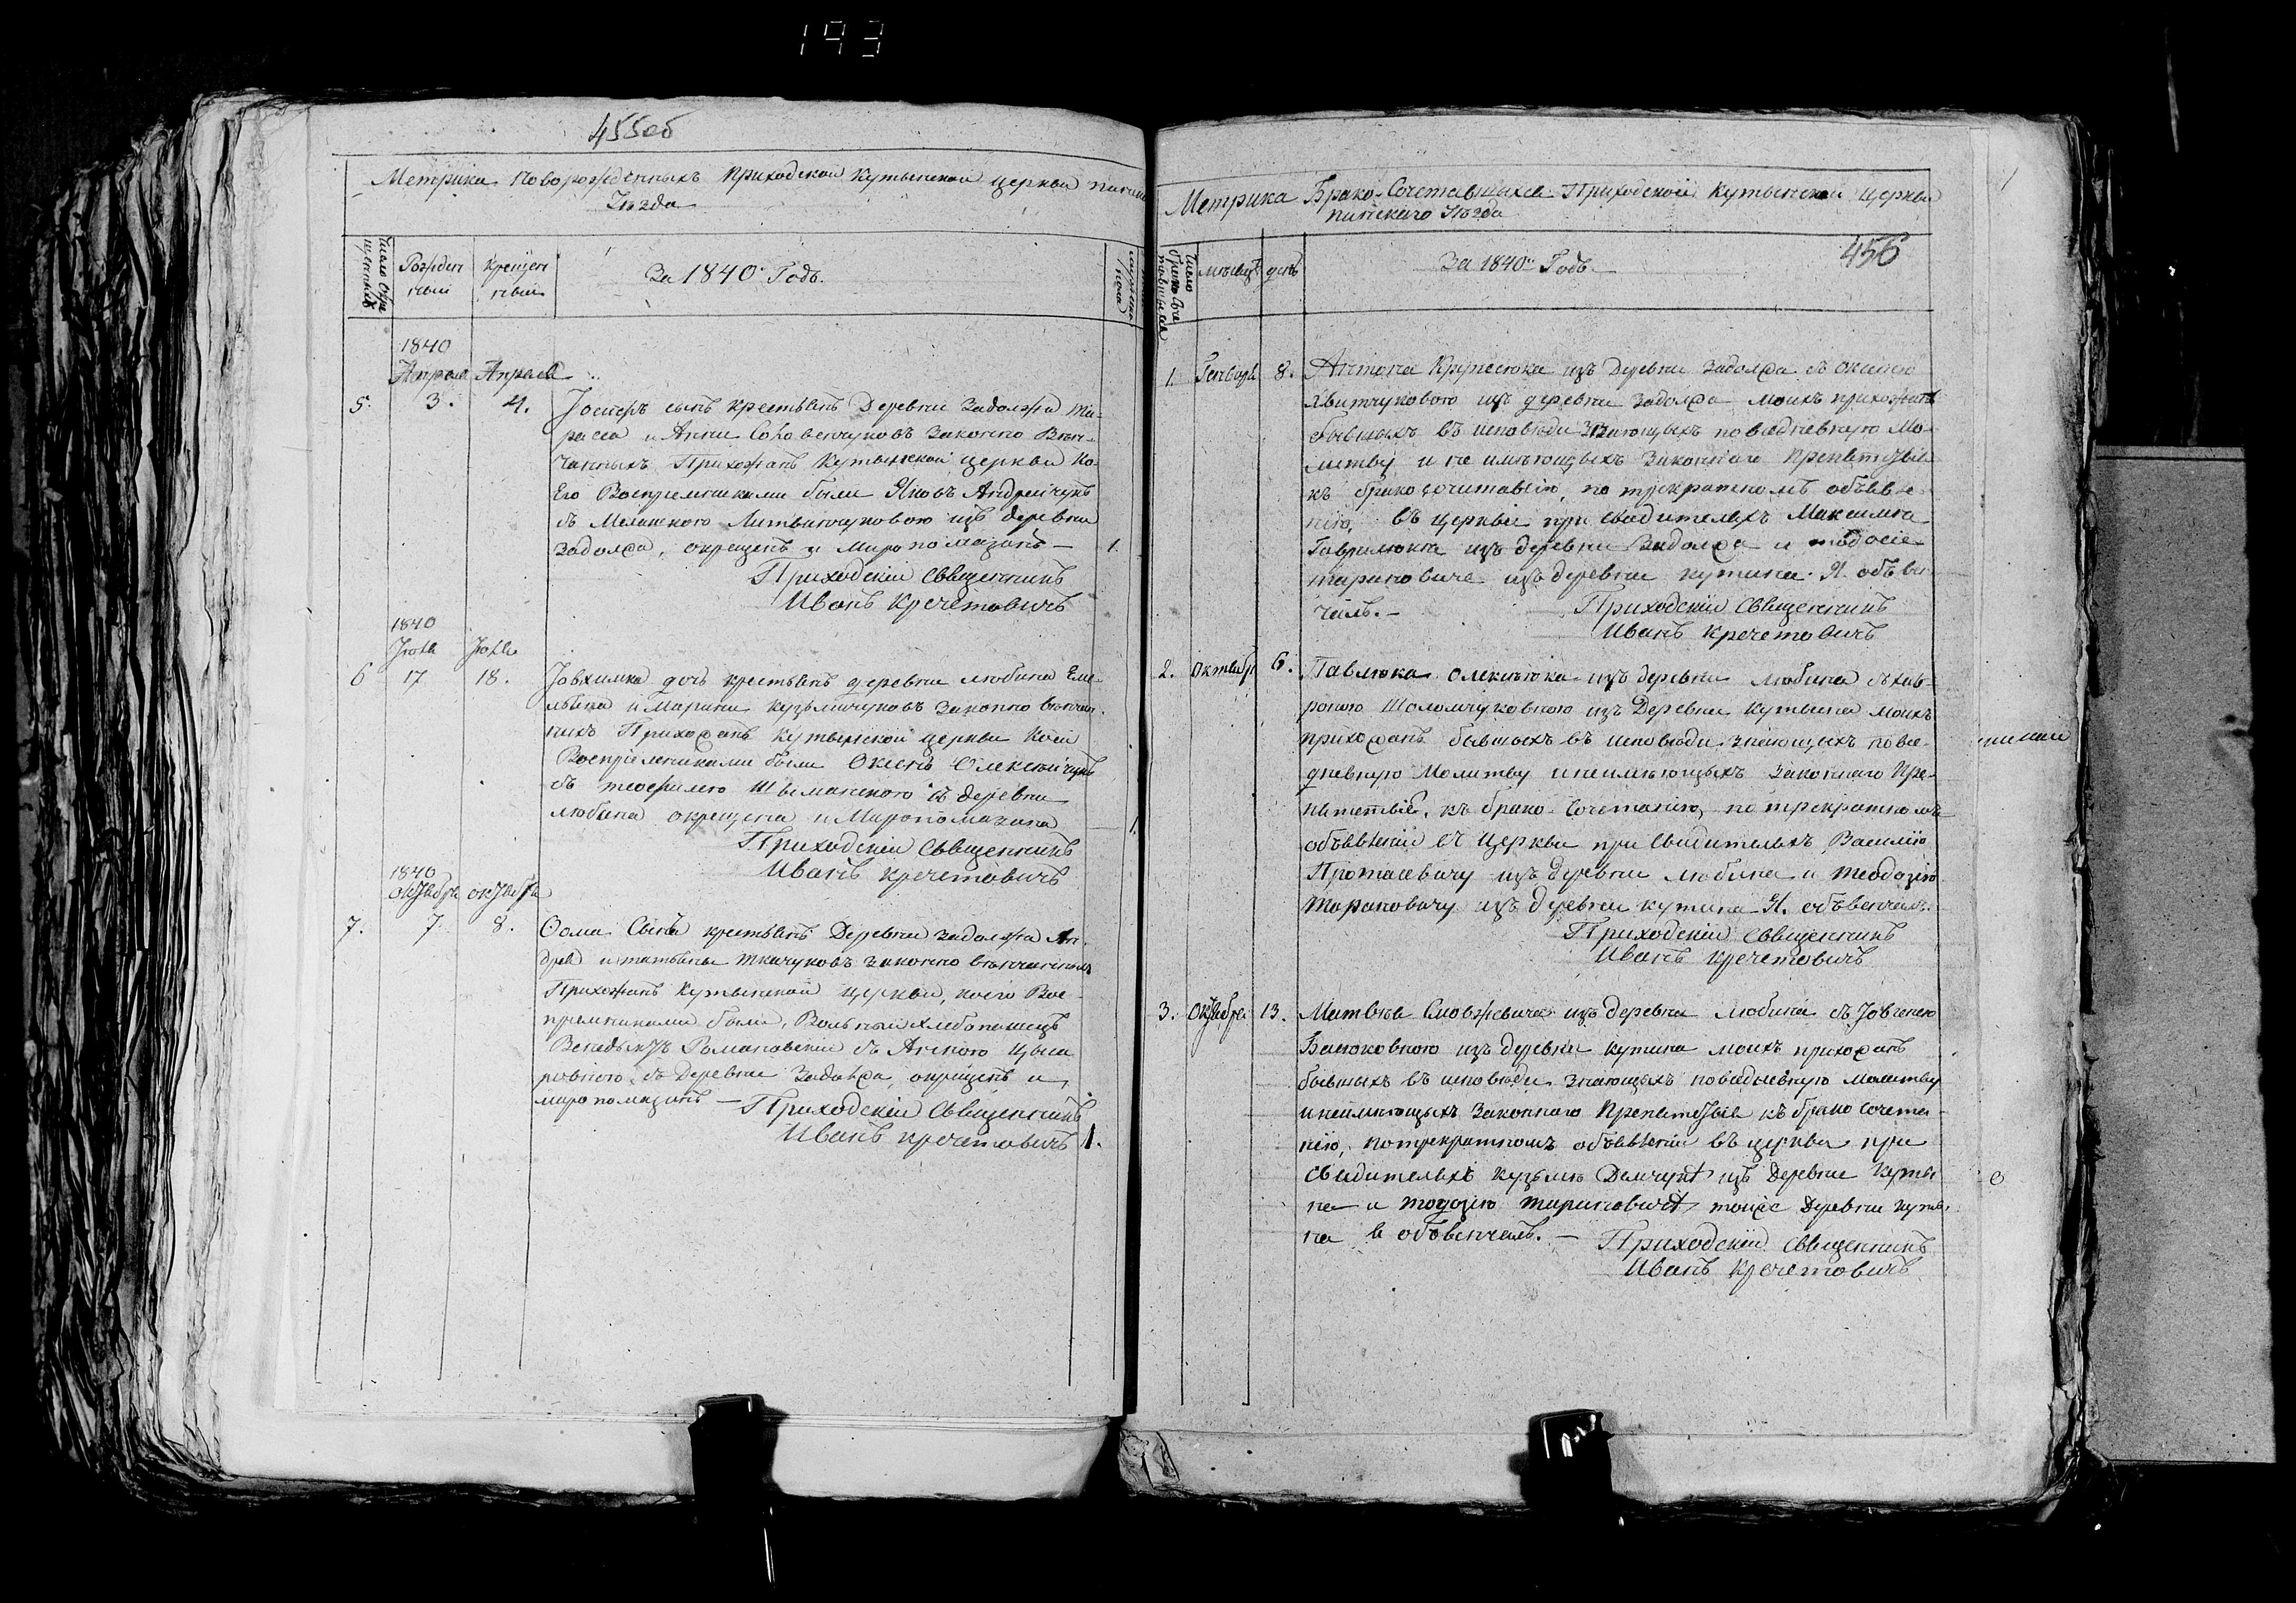 193
455об
Метрика Новорожденныхъ Приходской Кутынской церкви
Уѣзда
Рожден
ный
Крещен
ный
За 1840 Годъ.
1840
Апреля Апреля
5. 3. 4. Іосифъ сынъ крестьянъ Деревни Задолжа Та-
раса и Анны законно Вѣн-
чанныхъ Прихожанъ Кутынской церкви Ко-
Его Воспремниками были Яковъ Андрейчукъ
съ Литвинчуковою изъ деревни
Задолжа, окрещенъ и Миропомазанъ — 1.
Приходскій Священникъ
Иванъ Кречетовичъ
1840
Іюля Іюля
6 17 18. Іовхимка дочь крестьянъ деревни Любиня Еме-
льяна и Марины Кузьмичуковъ Законно вѣнчан-
ныхъ Прихожанъ Кутынской церкви Коей
Воспріемниками были Олексѣйчукъ
съ деревни
Любиня окрещена и Миропомазана — 1.
Приходскій Священникъ
Иванъ Кречетовичъ
1840
октября октября
7. 7. 8. Ѳома Сынъ крестьянъ Деревни Задолжа Ан-
дрея и Татьяны Ткачуковъ законно вѣнчанныхъ
Прихожанъ Кутынской церкви, коего Вос-
премниками были, Вольный хлебопашецъ
Романовскій съ
съ Деревни Задолжа, окрещенъ и
миропомазанъ — Приходскій Священникъ
Иванъ Кречетовичъ 1.
Метрика Брако-Сочетавшыхся Приходской Кутынской Церкви
Пинскаго Уѣзда
456
Число
Брако Соче
тавшыхся
мѣсяцъ
день
За 1840 Годъ.—
1. Генваря 8. Антона из Деревни Задолжа съ
из деревни Задолжа моихъ прихожанъ
бывшыхъ въ исповѣди знающыхъ повседневную Мо-
литву и не имѣющыхъ Законнаго Препятствія
къ брако сочитанію, по трекратномъ объявле-
нію, въ Церкви при свидителяхъ Максима
Гаврилюка изъ деревни Задолжа и
Тарановича изъ деревни Кутина Я объвѣн-
чалъ.— Приходскій Священникъ
Иванъ Кречетовичъ
2. Октября 6. Павлюка изъ деревни Любиня съ Хав-
роною изъ Деревни Кутына моихъ
прихожанъ бывшыхъ въ исповѣди знающыхъ повсе-
дневную Молитву и неимѣющыхъ Законнаго Пре-
пятствія, къ брако-Сочетанію, по трекратномъ
объявленіи въ Церкви при Свидителяхъ Василію
Протасевичу изъ Деревни Любиня и Теодозію
Тарановичу изъ деревни Кутина Я. объвенчалъ.
Приходскій Священникъ
Иванъ Кречетовичъ
3. Октября 13. Матвѣя изъ деревни Любиня съ
изъ деревни Кутина моихъ прихожанъ
бывшыхъ въ исповѣди знающыхъ повседневную Молитву
и неимѣющыхъ Законнаго Препятствія къ брако Сочета-
нію, потрекратномъ объявленіи въ церкви при
Свидителяхъ Кузьмы изъ Деревни Куты-
на и Тодозію Тарановича тойже Деревни Куты-
на Я объвенчалъ.— Приходскій Священникъ
Иванъ Кречетовичъ